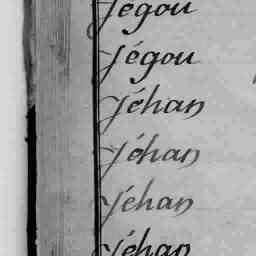 Jégou
Jégou
Jéhan
Jéhan
Jéhan
Jéhan